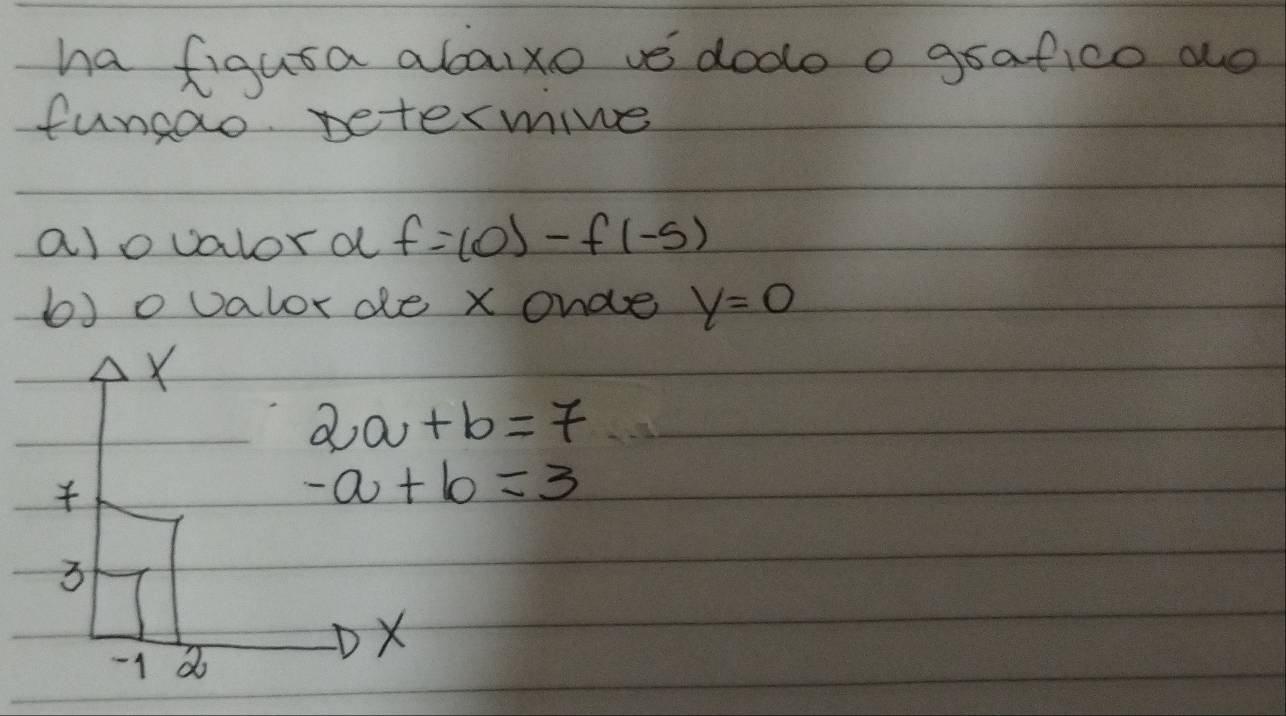 na figura abaixo é dado o grafico do
função. Determine
a) o valor d f=(0) - f(-5)
b) o valor de x onde y=0
X
2a+b=7
-a+b=3
7
3
X
-1 2